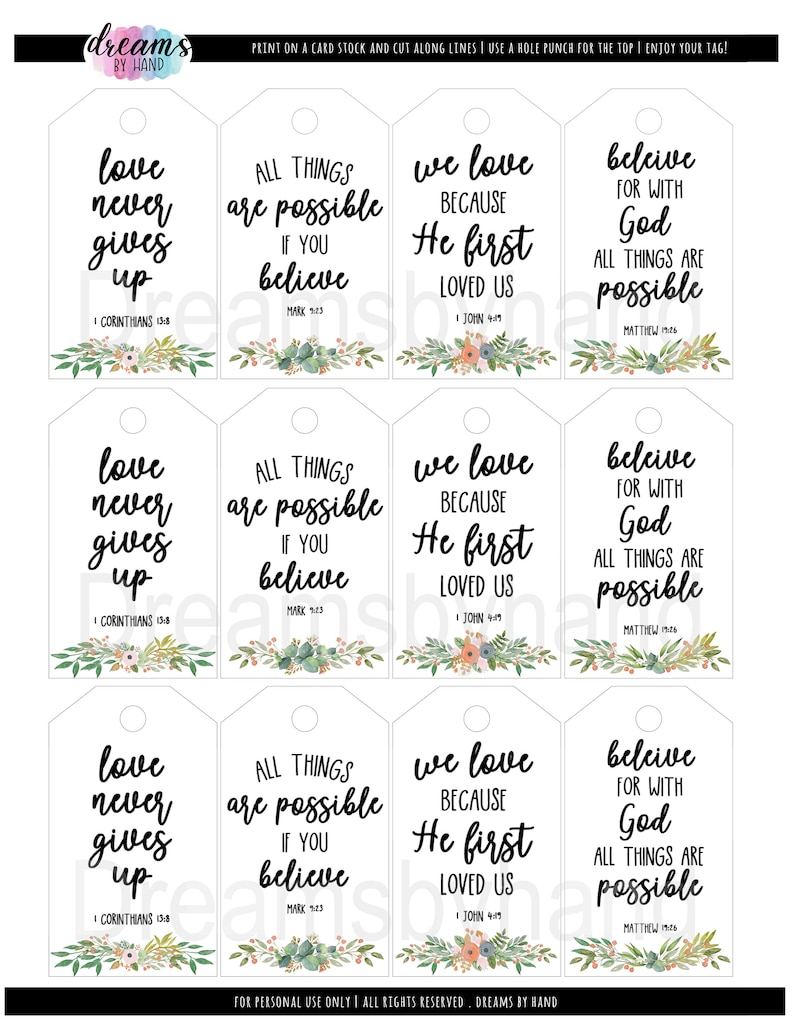 dreams
BY HAND
PRINT ON A CARD STOCK AND CUT ALONG LINES | USE A HOLE PUNCH FOR THE TOP | ENJOY YOUR TAG!
love
never
gives
up
1 CORINTHIANS 13:8
ALL THINGS
are possible
IF YOU
believe
MARK 9:23
we love
BECAUSE
He first
LOVED US
1 JOHN 4:19
beleive
FOR WITH
God
ALL THINGS ARE
possible
MATTHEW 19:26
Dreamsbyhand
love
never
gives
up
1 CORINTHIANS 13:8
ALL THINGS
are possible
IF YOU
believe
MARK 9:23
we love
BECAUSE
He first
LOVED US
1 JOHN 4:19
beleive
FOR WITH
God
ALL THINGS ARE
possible
MATTHEW 19:26
Dreamsbyhand
love
never
gives
up
1 CORINTHIANS 13:8
ALL THINGS
are possible
IF YOU
believe
MARK 9:23
we love
BECAUSE
He first
LOVED US
1 JOHN 4:19
beleive
FOR WITH
God
ALL THINGS ARE
possible
MATTHEW 19:26
Dreamsbyhand
FOR PERSONAL USE ONLY | ALL RIGHTS RESERVED . DREAMS BY HAND